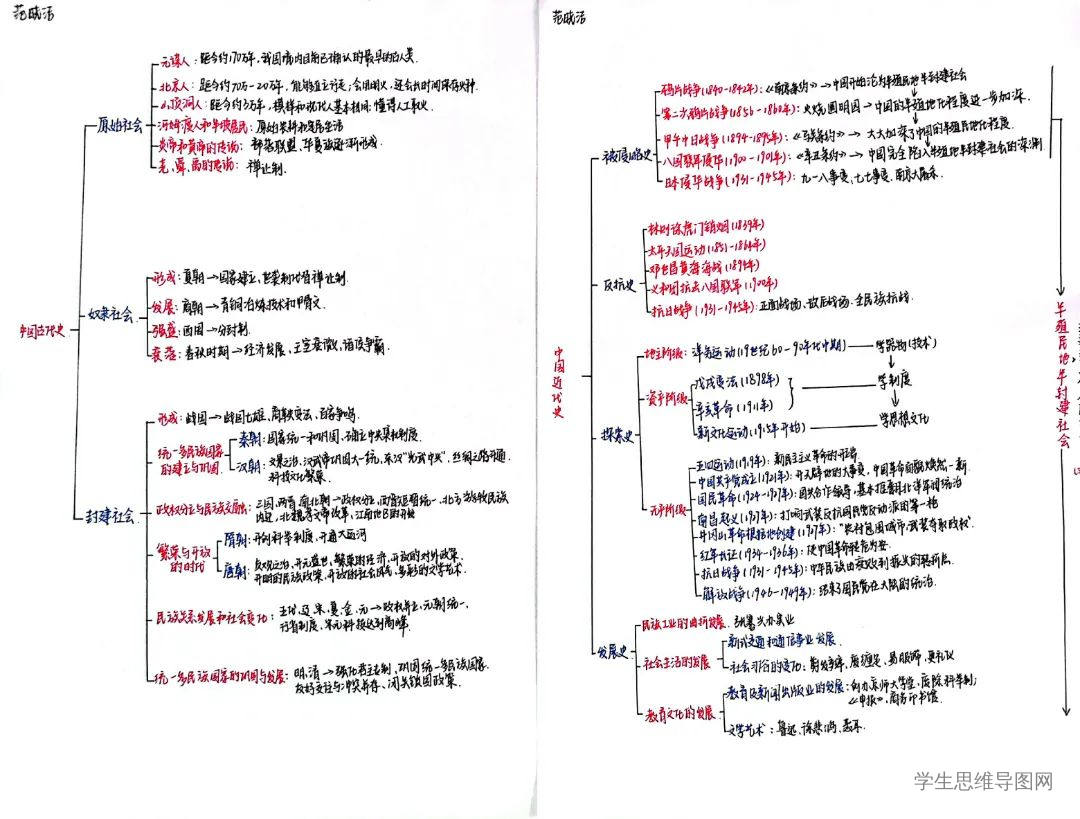 范晓洁
中国古代史
原始社会
元谋人：距今约170万年，我国境内目前已确认的最早的古人类.
北京人：距今约70万-20万年，能够直立行走；会用火，还会长时间保存火种.
山顶洞人：距今约3万年，模样和现代人基本相同；懂得人工取火.
河姆渡人和半坡居民：原始农耕和定居生活
炎帝和黄帝的传说：部落联盟，华夏族逐渐形成.
尧、舜、禹的传说：禅让制.
奴隶社会
形成：夏朝→国家建立，世袭制代替禅让制.
发展：商朝→青铜冶炼技术和甲骨文.
强盛：西周→分封制.
衰落：春秋时期→经济发展，王室衰微，诸侯争霸.
封建社会
形成：战国→战国七雄，商鞅变法，百家争鸣.
统一多民族国家
的建立与巩固
秦朝：国家统一和巩固，确立中央集权制度.
汉朝：文景之治，汉武帝巩固大一统，东汉“光武中兴”，丝绸之路开通.
科技文化繁荣.
政权分立与民族交融：三国，两晋，南北朝→政权分立，西晋短暂统一，北方游牧民族
内迁，北魏孝文帝改革，江南地区的开发
繁荣与开放
的时代
隋朝：开创科举制度，开通大运河
唐朝：贞观之治，开元盛世，繁荣的经济，开放的对外政策.
开明的民族政策，开放的社会风气，多彩的文学艺术.
民族关系发展和社会变化：五代，辽，宋，夏，金，元→政权并立，元朝统一，
行省制度，宋元科技达到高峰.
统一多民族国家的巩固与发展：明，清→强化君主专制，巩固统一多民族国家.
友好交往与冲突并存，闭关锁国政策.
范晓洁
中国近代史
被侵略史
鸦片战争(1840-1842年)：《南京条约》→中国开始沦为半殖民地半封建社会
第二次鸦片战争(1856-1860年)：火烧圆明园→中国的半殖民地化程度进一步加深.
甲午中日战争(1894-1895年)：《马关条约》→大大加深了中国的半殖民地化程度.
八国联军侵华(1900-1901年)：《辛丑条约》→中国完全陷入半殖民地半封建社会的深渊
日本侵华战争(1931-1945年)：九一八事变，七七事变，南京大屠杀.
反抗史
林则徐虎门销烟(1839年)
太平天国运动(1851-1864年)
邓世昌黄海海战(1894年)
义和团抗击八国联军(1900年)
抗日战争(1931-1945年)：正面战场，敌后战场，全民族抗战.
探索史
地主阶级：洋务运动(19世纪60-90年代中期)——学器物(技术)
资产阶级
戊戌变法(1898年)
辛亥革命(1911年)
学制度
新文化运动(1915年开始)——学思想文化
无产阶级
五四运动(1919年)：新民主主义革命的开端
中国共产党成立(1921年)：开天辟地的大事变，中国革命面貌焕然一新.
国民革命(1924-1927年)：国共合作领导，基本推翻北洋军阀统治
南昌起义(1927年)：打响武装反抗国民党反动派的第一枪
井冈山革命根据地创建(1927年)：“农村包围城市，武装夺取政权”.
红军长征(1934-1936年)：使中国革命转危为安.
抗日战争(1931-1945年)：中华民族由衰败到振兴的转折点.
解放战争(1946-1949年)：结束了国民党在大陆的统治.
发展史
民族工业的曲折发展：张謇兴办实业
社会生活的发展
新式交通和通信事业发展.
社会习俗的变化：剪发辫，废缠足，易服饰，更礼仪
教育文化的发展
教育及新闻出版业的发展：创办京师大学堂，废除科举制；
《申报》，商务印书馆.
文学艺术：鲁迅，徐悲鸿，聂耳.
半殖民地半封建社会
学生思维导图网